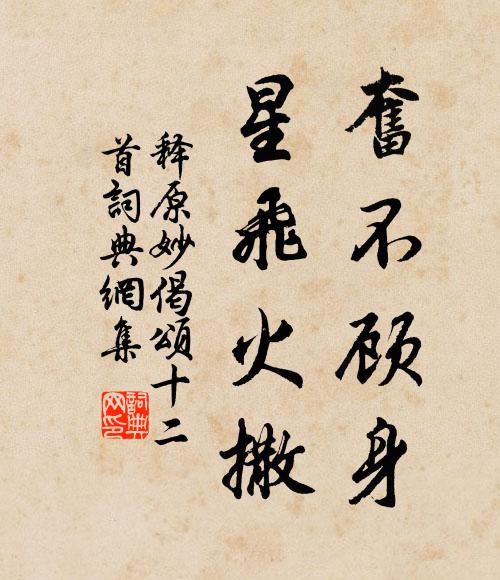 奮不顾身
星飛火撒
释原妙偈頌十二
首詞典網集
詞典
网印